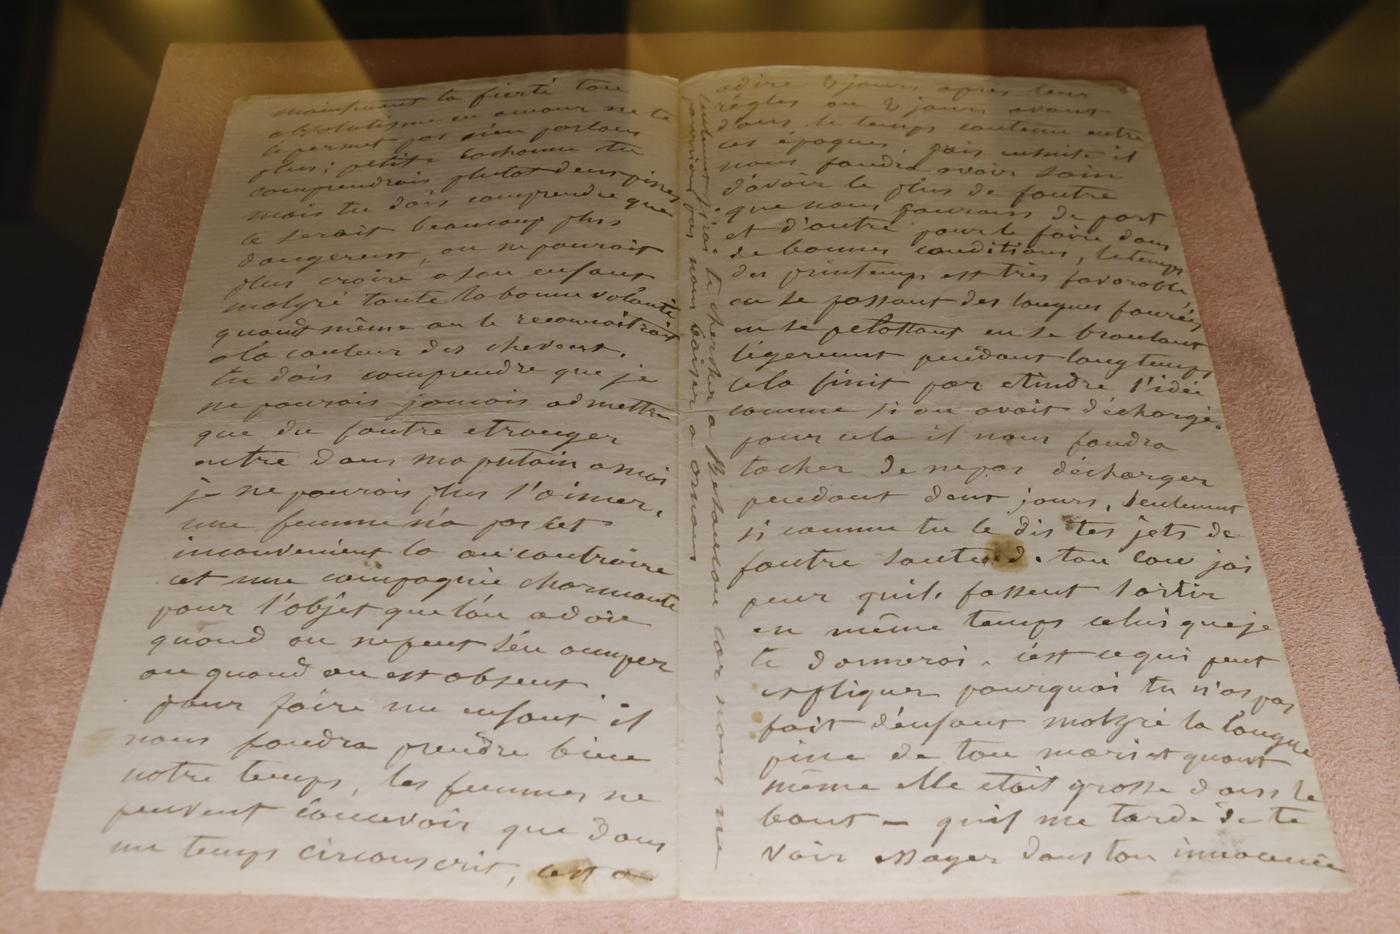 maintenant ta fierté ton
absolutisme en amour ne te
le permet pas bien parlons
plus; petite cochonne tu
comprendrais plutot deux pines
mais tu dois comprendre que
ce serait beaucoup plus
dangereux, on ne pourait
plus croire a son enfant
malgré toute la bonne volonté
quand même on le reconnaitrait
a la couleur des cheveux.
tu dois comprendre que je
ne pourais jamais admettre
que du foutre etranger
entre dans ma putain a moi
je ne pourais plus t'aimer,
une femme n'a pas cet
inconvenient la au contraire
cet une compagnie charmante
pour l'objet que l'on adore
quand on ne peut s'en occuper
ou quand on est absent.
pour faire un enfant il
nous faudra prendre bien
notre temps, les femmes ne
peuvent concevoir que dans
un temps circonscrit, cest a
dire 8 jours apres leur
régles ou 8 jours avant
dans le temps contenu entre
ces époques. puis ensuite il
nous faudra avoir soin
d'avoir le plus de foutre
que nous pourrons de part
et d'autre pour le faire dans
de bonnes conditions, le temps
du printemps est très favorable
en se passant des langues fourrées
en se pelottant en se branlant
légerement pendant longtemps
cela finit par etindre l'idée
comme si on avait déchargé.
pour cela il nous faudra
tacher de ne pas décharger
pendant deux jours, seulement
si comme tu le dis tes jets de
foutre sautent de ton con jai
peur quils fassent sortir
en même temps celui que je
te donnerai. cest ce qui peut
expliquer pourquoi tu n'as pas
fait d'enfant malgré la longue
pine de ton mari et quant
même elle etait grosse dans le
bout — quil me tarde de te
voir essayer dans ton innocence
seulement j'irai te chercher a car nous ne
pourrions pas nous baiser a